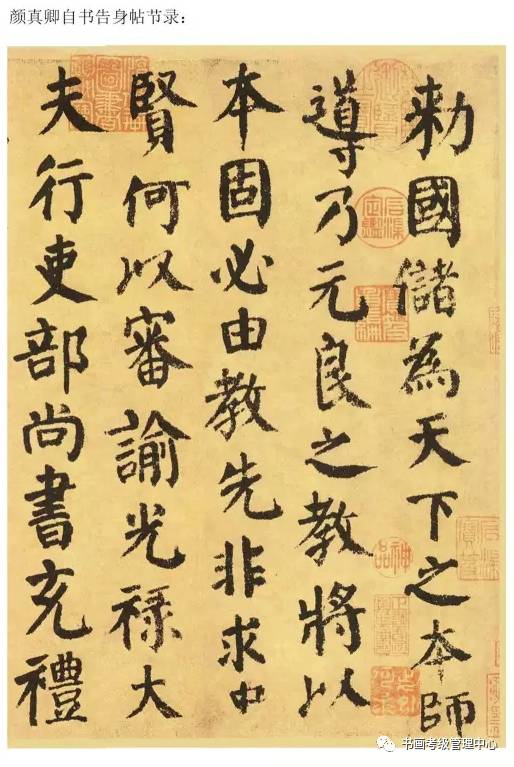 颜真卿自书告身帖节录：
勑國儲為天下之本師
導乃元良之教將以
本固必由教先非求中
賢何以審諭光祿大
夫行吏部尚書充禮
神品
书画考级管理中心